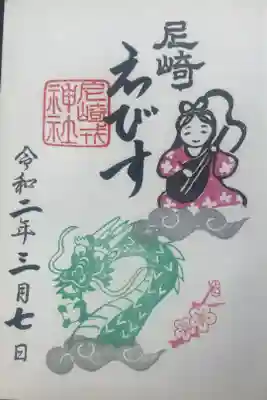 尼崎
えびす
尼崎戎
神社
令和二年三月七日